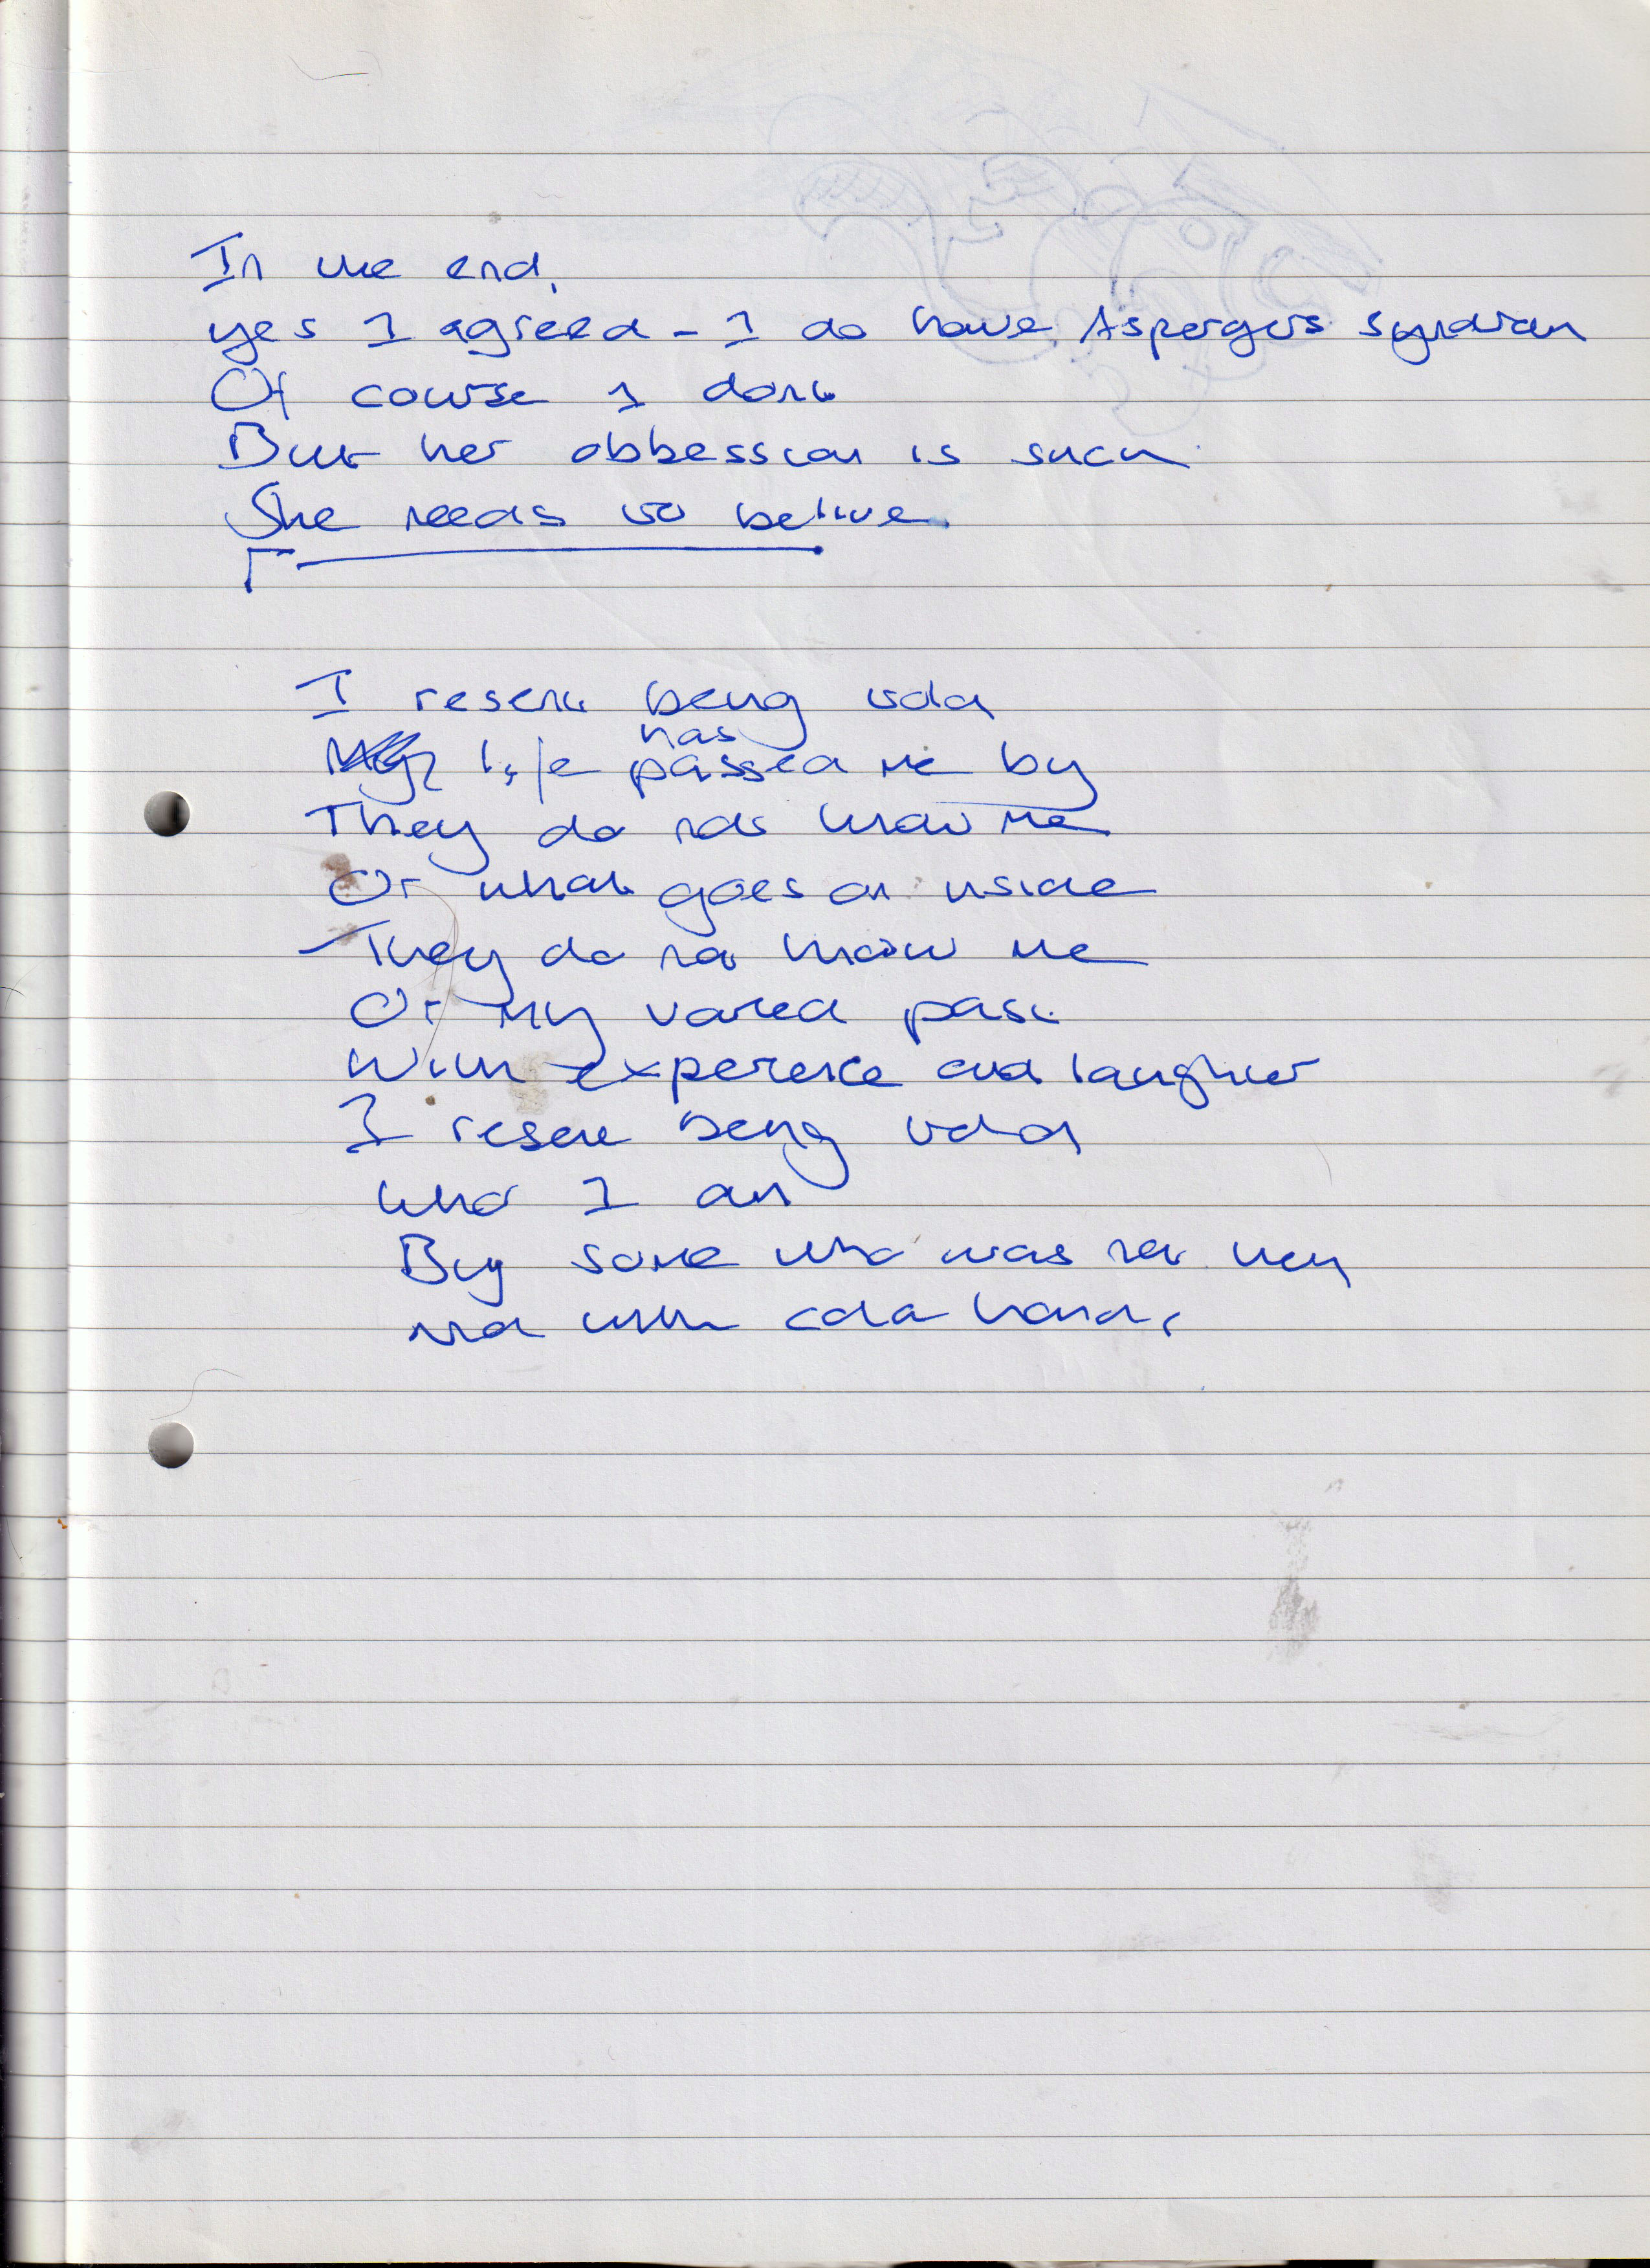 In the end,
yes I agreed - I do have Aspergers syndrom
Of course I dont
But her obbession is such
She needs to belive.
I resent being told
life has passed me by
They do not know me
Or what goes on inside
They do not know me
Or my varied past
With experence and laughter
I resent being told
who I am
By some who was not
with cold hands